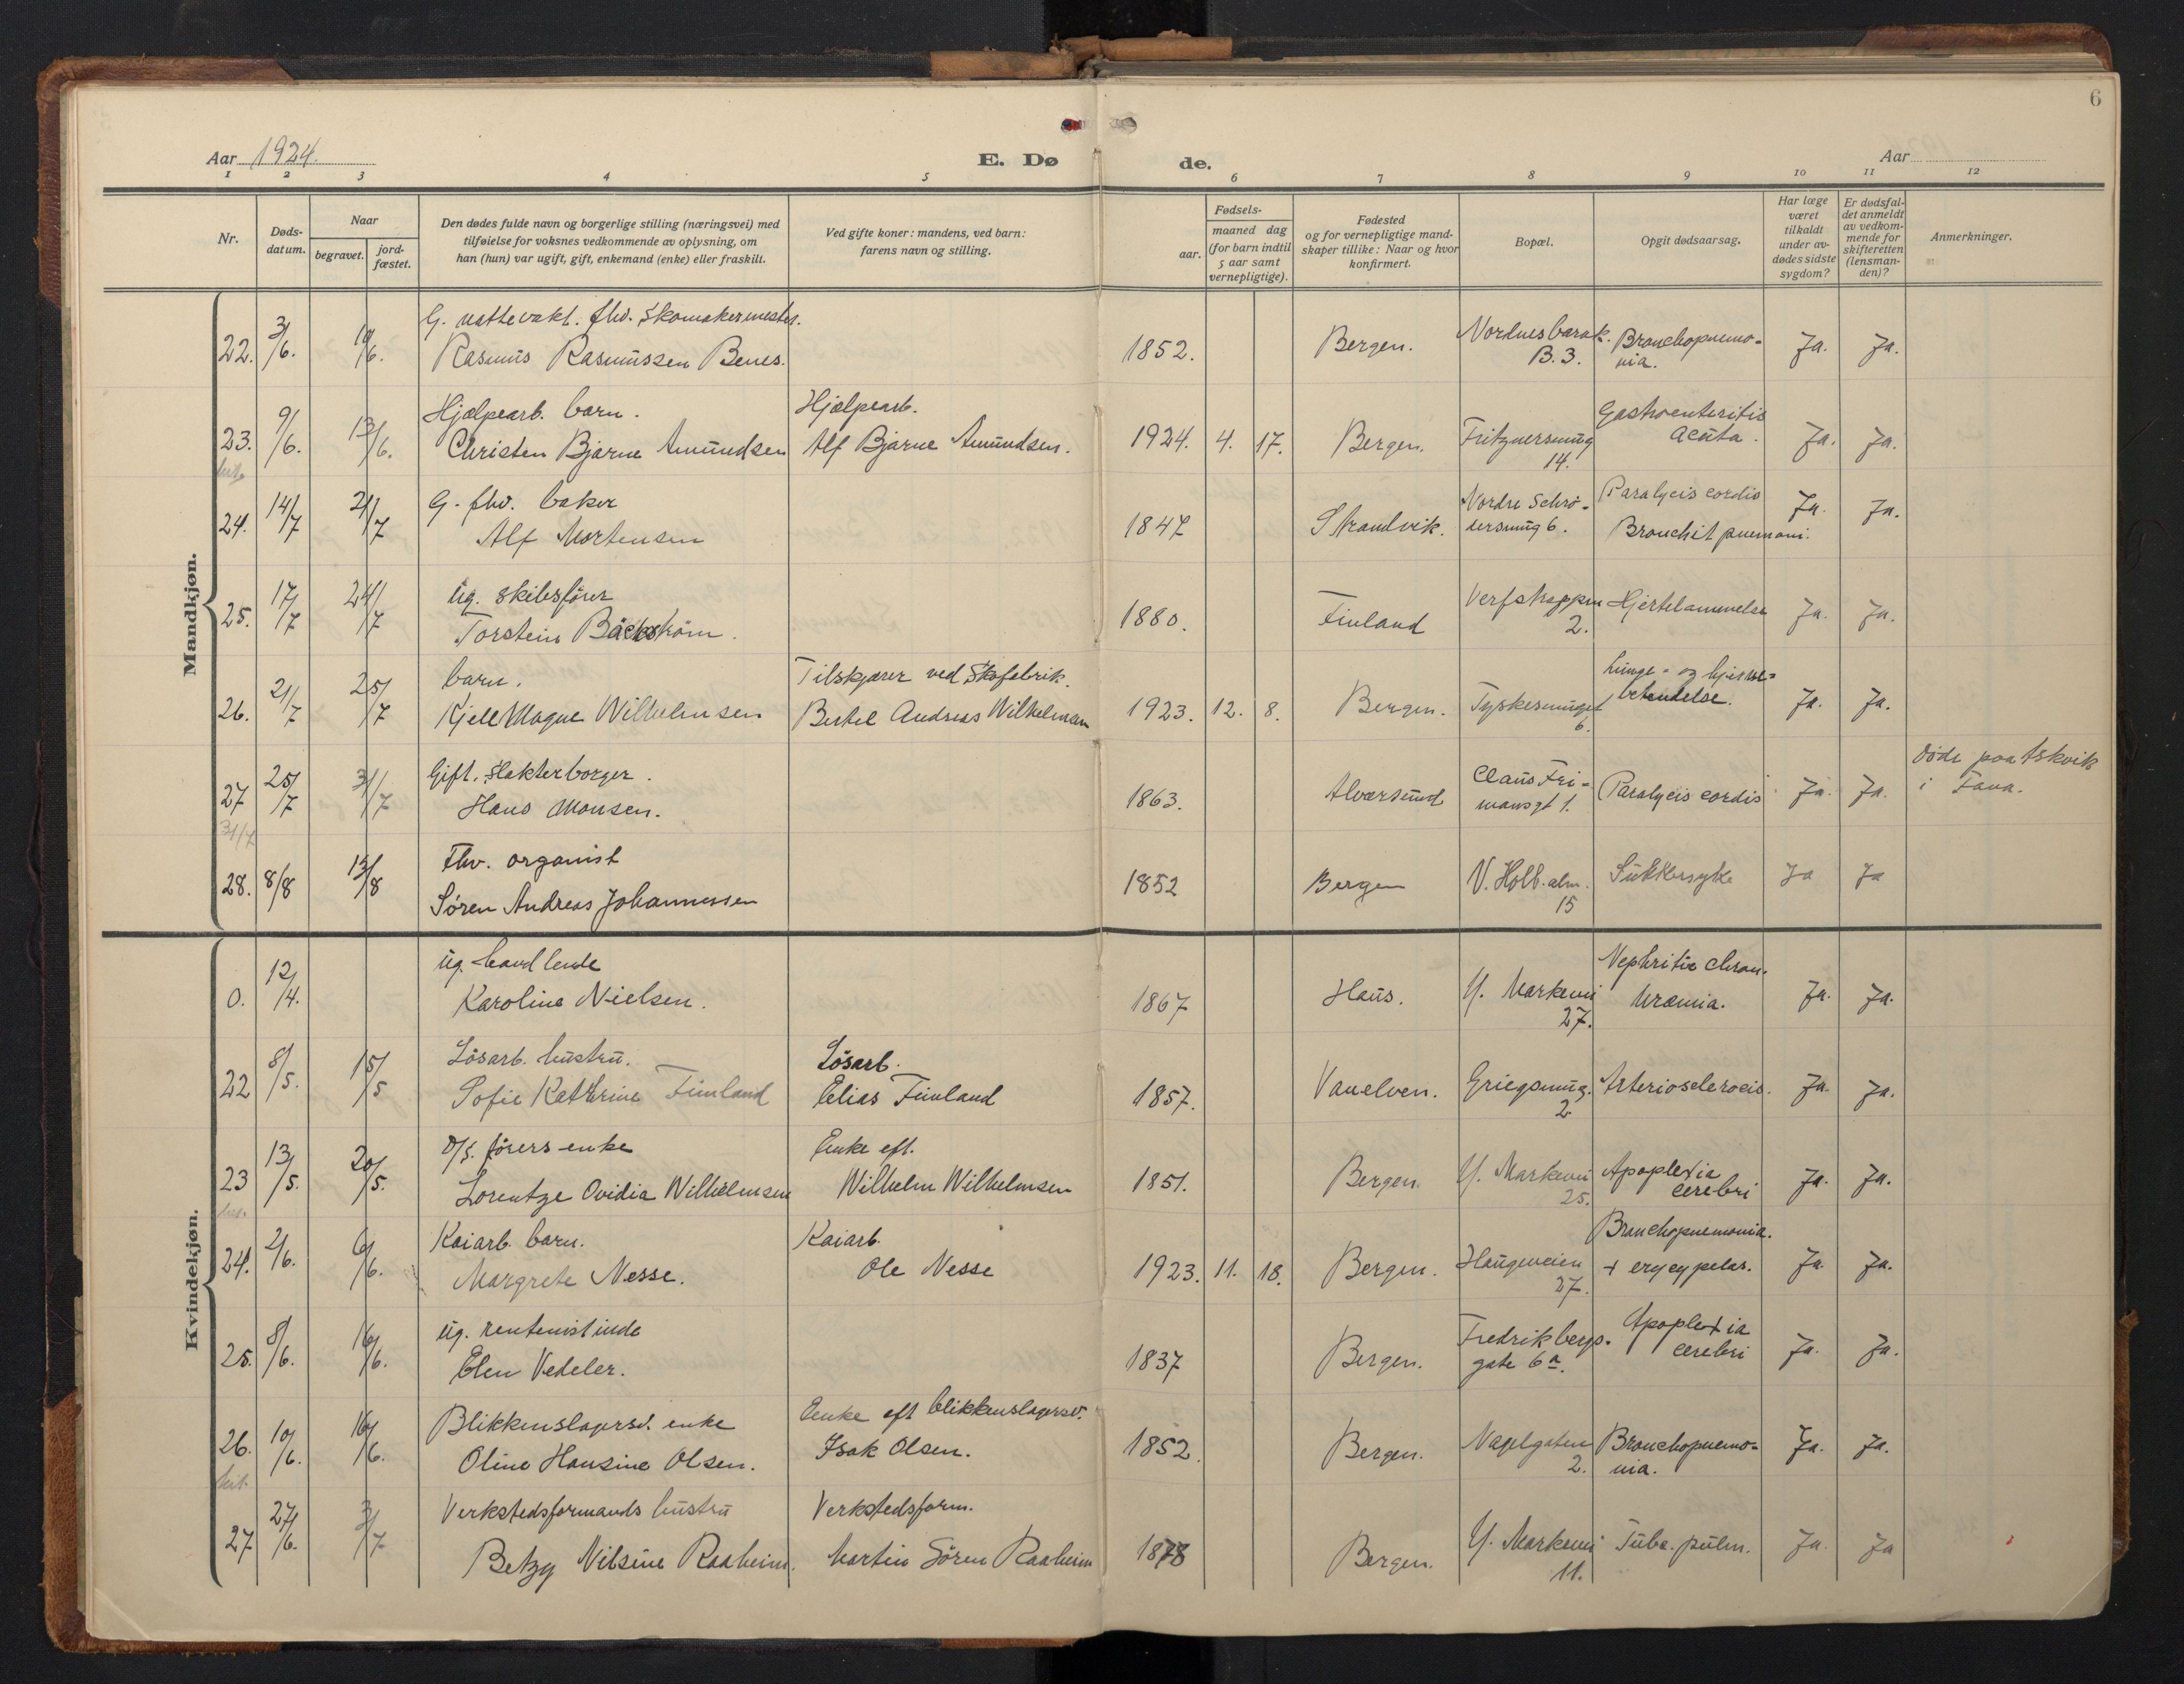 6
Aar 1924.
E. Dø de.
Aar
1 2 3 4 5 6 7 8 9 10 11 12
Nr.
Døds-
datum.
Naar
begravet.
jord-
fæstet.
Den dødes fulde navn og borgerlige stilling (næringsvei) med
tilføielse for voksnes vedkommende av oplysning, om
han (hun) var ugift, gift, enkemand (enke) eller fraskilt.
Ved gifte koner: mandens, ved barn:
farens navn og stilling.
Fødsels-
aar.
maaned dag
(for barn indtil
5 aar samt
vernepligtige).
Fødested
og for vernepligtige mand-
skaper tillike: Naar og hvor
konfirmert.
Bopæl.
Opgit dødsaarsag.
Har læge
været
tilkaldt
under av-
dødes sidste
sygdom?
Er dødsfal-
det anmeldt
av vedkom-
mende for
skifteretten
(lensman-
den)?
Anmerkninger.
Mandkjøn.
G. nattevakt. fhv. skomakermester.
22. 3/6. 10/6. Rasmus Rasmussen Benes. 1852. Bergen. Nordnesbarak. Bronchopnemo- Ja. Ja.
B. 3. nia.
Hjælpearb. barn. Hjælpearb. Gastroenteritis
23. 9/6. 13/6. Christen Bjarne Amundsen Alf Bjarne Amundsen. 1924. 4. 17. Bergen. Fritznersmug acuta. Ja. Ja.
14.
G. fhv. baker Nordre Schrø- Paralycis cordis
24. 14/7 21/7 Alf Mortensen 1847 Strandvik. dersmug 6. Bronchit pnemoni. Ja. Ja.
ug. skibsfører
25. 17/7 24/7 Torstein Bäckström. 1880. Finland Verfstrappen Hjertelammelse Ja. Ja.
2.
barn. Tilskjærer ved Skofabrik. Lunge- og hjerne-
26. 21/7 25/7 Kjell Magne Wilhelmsen Bertel Andreas Wilhelmsen 1923. 12. 8. Bergen. Tyskesmuget betendelse. Ja. Ja.
6.
Gift. Slakterborger. Claus Fri- døde paa
27 25/7 31/7 Hans Monsen. 1863. Alversund mansgt 1. Paralycis cordis Ja. Ja. i Fana.
31/7
Fhv. organist
28. 8/8 13/8 Søren Andreas Johannessen 1852 Bergen V. Holb. alm. Sukkersyke Ja Ja
15
Kvindekjøn.
ug. handlende Nephritis chron.
0. 12/4. Karoline Nielsen. 1867 Haus. Y. Markevei Uræmia. Ja. Ja.
27.
Løsarb. hustru. Løsarb.
22 8/5. 15/5 Sofie Kathrine Finland Elias Finland 1857. Vanelven. Griegsmug. Arteriosclerocis. Ja. Ja.
2
D/S. førers enke Enke eft.
23 13/5. 20/5. Lorentze Ovidia Wilhelmsen Wilhelm Wilhelmsen 1851. Bergen. Y. Markevei Apoplexia Ja. Ja.
25. cerebri
Kaiarb. barn. Kaiarb. Bronchopnemonia.
24. 2/6. 6/6. Margrete Nesse. Ole Nesse 1923. 11. 18. Bergen. Haugeveien + erycypelas. Ja. Ja.
27.
ug. rentenistinde Fredrikbergs- Apoplexia
25. 8/6. 16/6. Elen Vedeler. 1837 Bergen. gate 6a. cerebri Ja. Ja.
Blikkenslagersv. enke Enke eft blikkenslagersv.
26. 10/6. 16/6. Oline Hansine Olsen. Isak Olsen. 1852. Bergen. Nagelgaten Bronchopnemo- Ja. Ja.
2. nia.
Verkstedsformands hustru Verkstedsform.
27 27/6. 3/7 Betzy Nilsine Raaheim. Martin Søren Raaheim 1878 Bergen. Y. Markevei Tube. pulm. Ja. Ja
11.